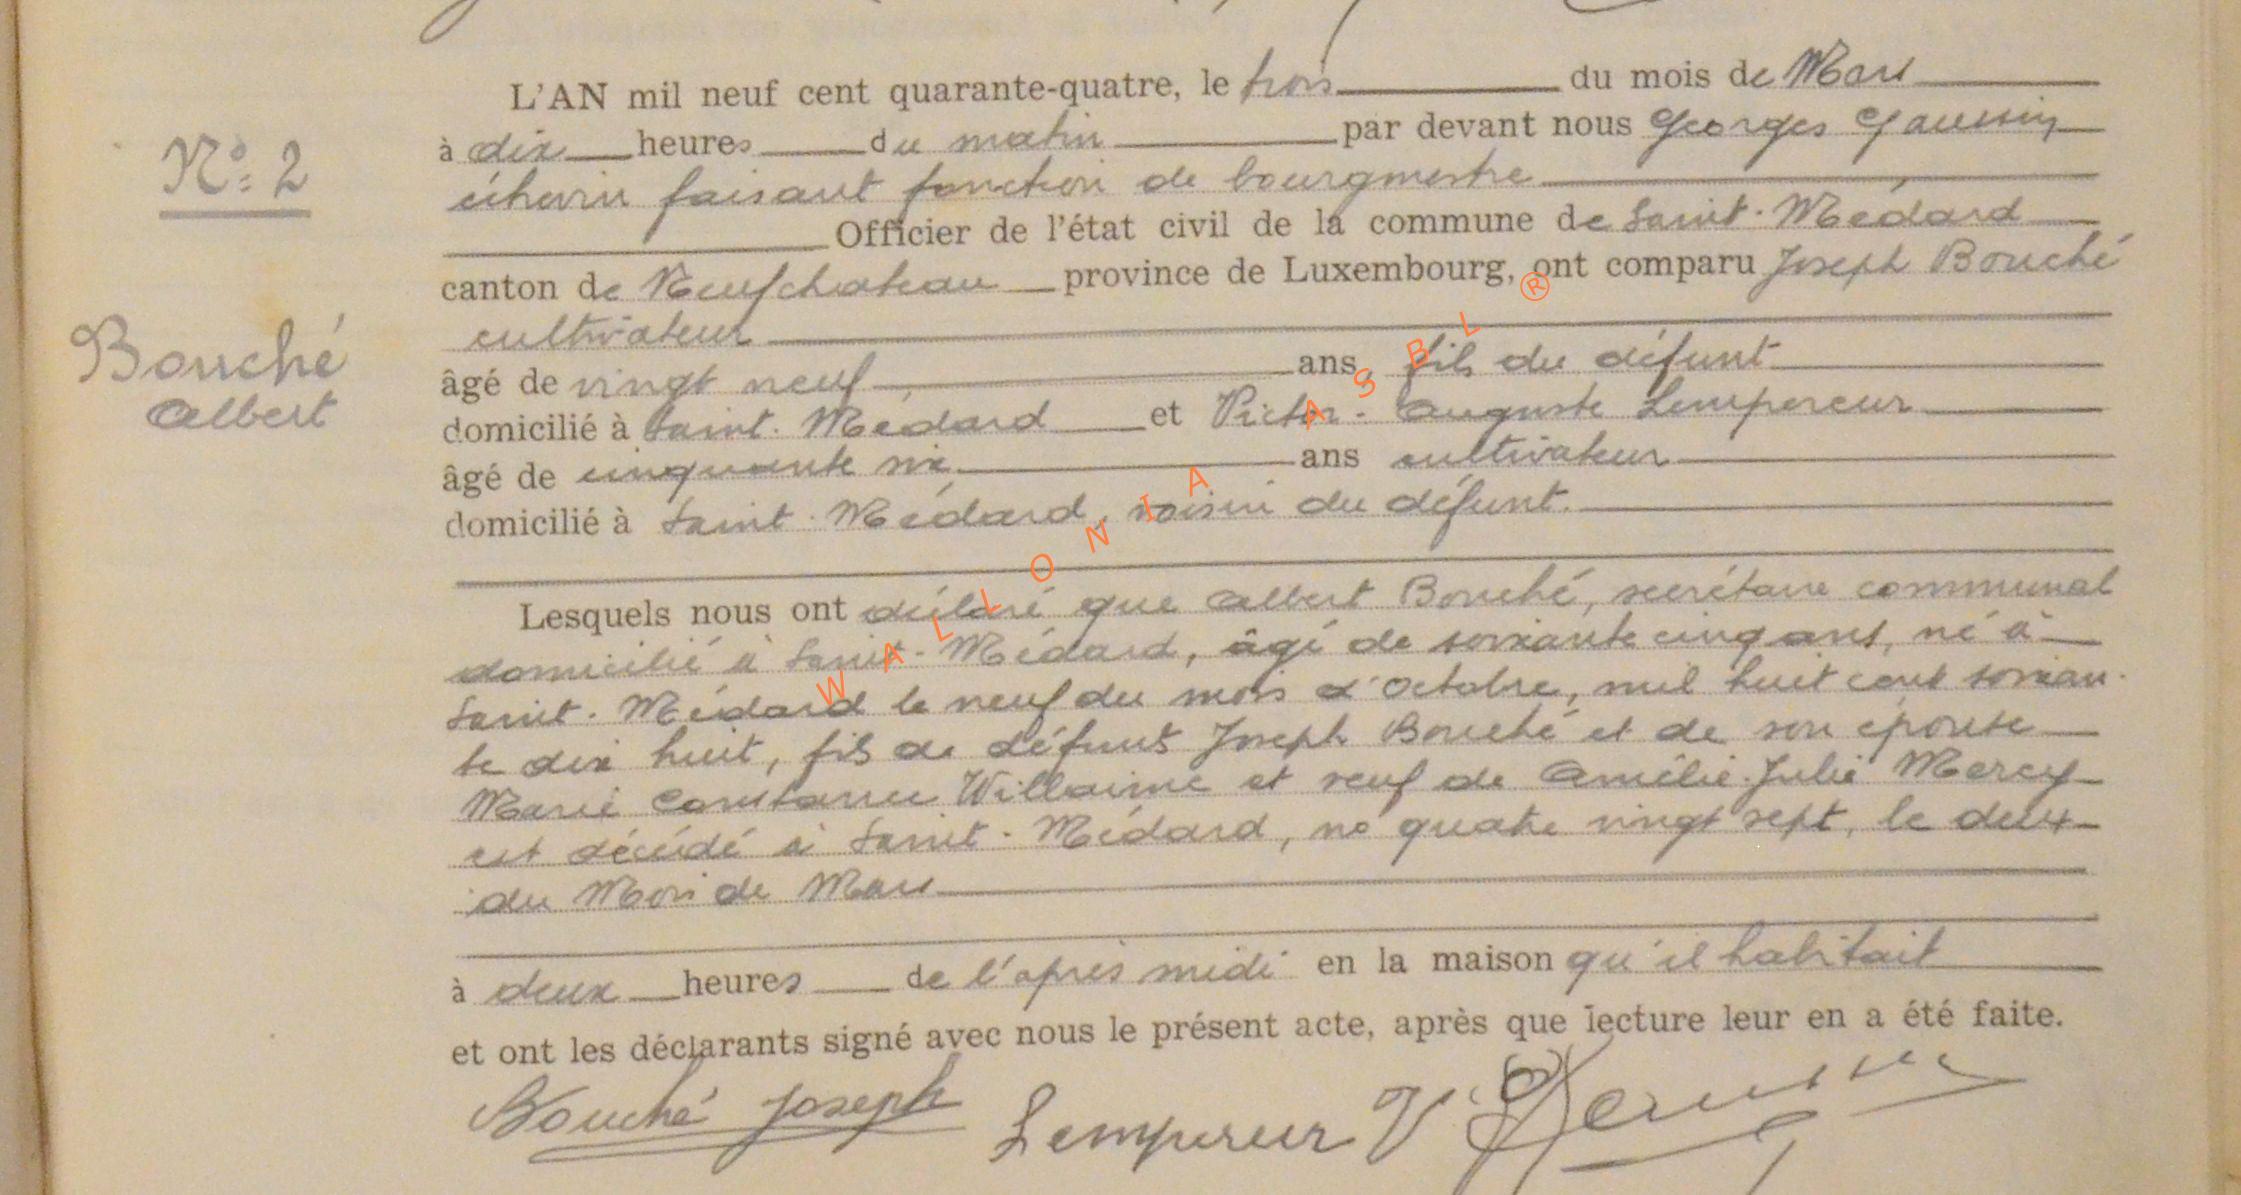 L'AN mil neuf cent quarante-quatre, le trois du mois de Mars
à dix heures du matin par devant nous Georges Gaussin
N° 2
échevin faisant fonction de bourgmestre
Officier de l'état civil de la commune de Saint-Médard
canton de Neufchateau province de Luxembourg, ont comparu Joseph Bouché
cultivateur
Bouché
Albert
âgé de vingt neuf ans, fils du défunt
domicilié à Saint-Médard et Victor-Auguste Lempereur
âgé de cinquante six ans cultivateur
domicilié à Saint-Médard, voisin du défunt.
Lesquels nous ont déclaré que Albert Bouché, secrétaire communal
domicilié à Saint-Médard, âgé de soixante cinq ans, né à
Saint-Médard le neuf du mois d'Octobre, mil huit cent soixan-
te dix huit, fils de défunts Joseph Bouché et de son épouse
Marie Constance Willaime et veuf de Amélie-Julie Mercy
est décédé à Saint-Médard, no quatre vingt sept, le deux
du Mois de Mars
à deux heures de l'après midi en la maison qu'il habitait
et ont les déclarants signé avec nous le présent acte, après que lecture leur en a été faite.
Bouché Joseph Lempereur V.
WALLONIA ASBL ®